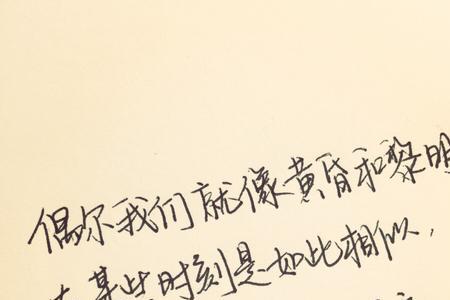 偶尔我们就像黄昏和黎明
在某些时刻是如此相似，